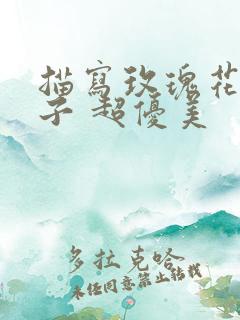 描寫玫瑰花
子 超優美
多拉克哈
未任同意禁止轉載